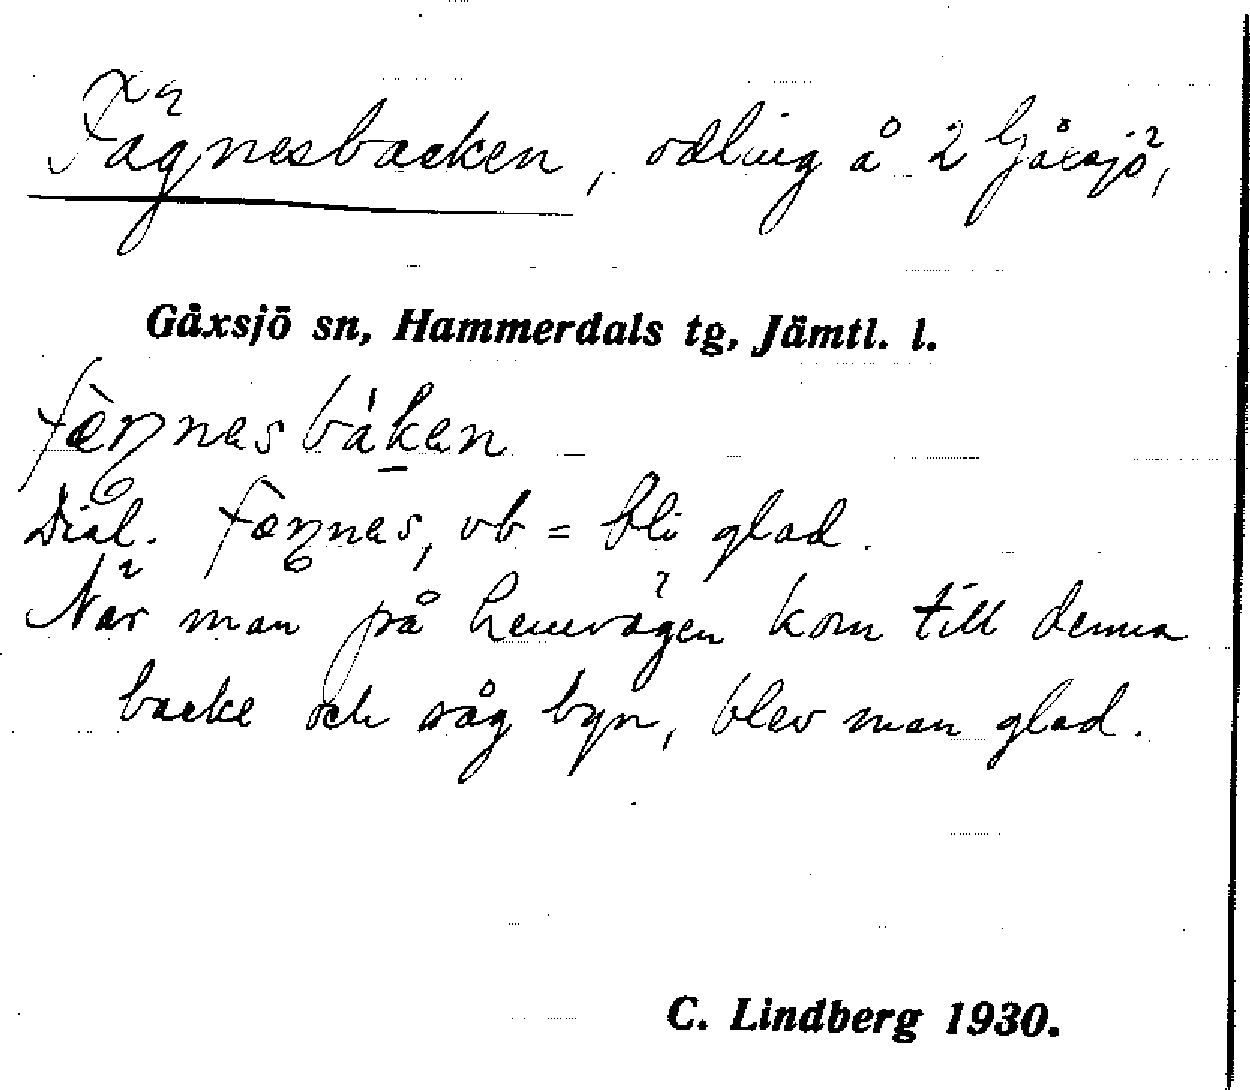 Fägnesbacken, odling å 2 Gåxsjö,
Gåxsjö sn, Hammerdals tg, Jämtl. l.
fæ̀ŋnesbáken
Dial. fæ̀ŋnes, vb = bli glad.
När man på hemvägen kom till denna
backe och såg byn, blev man glad.
C. Lindberg 1930.